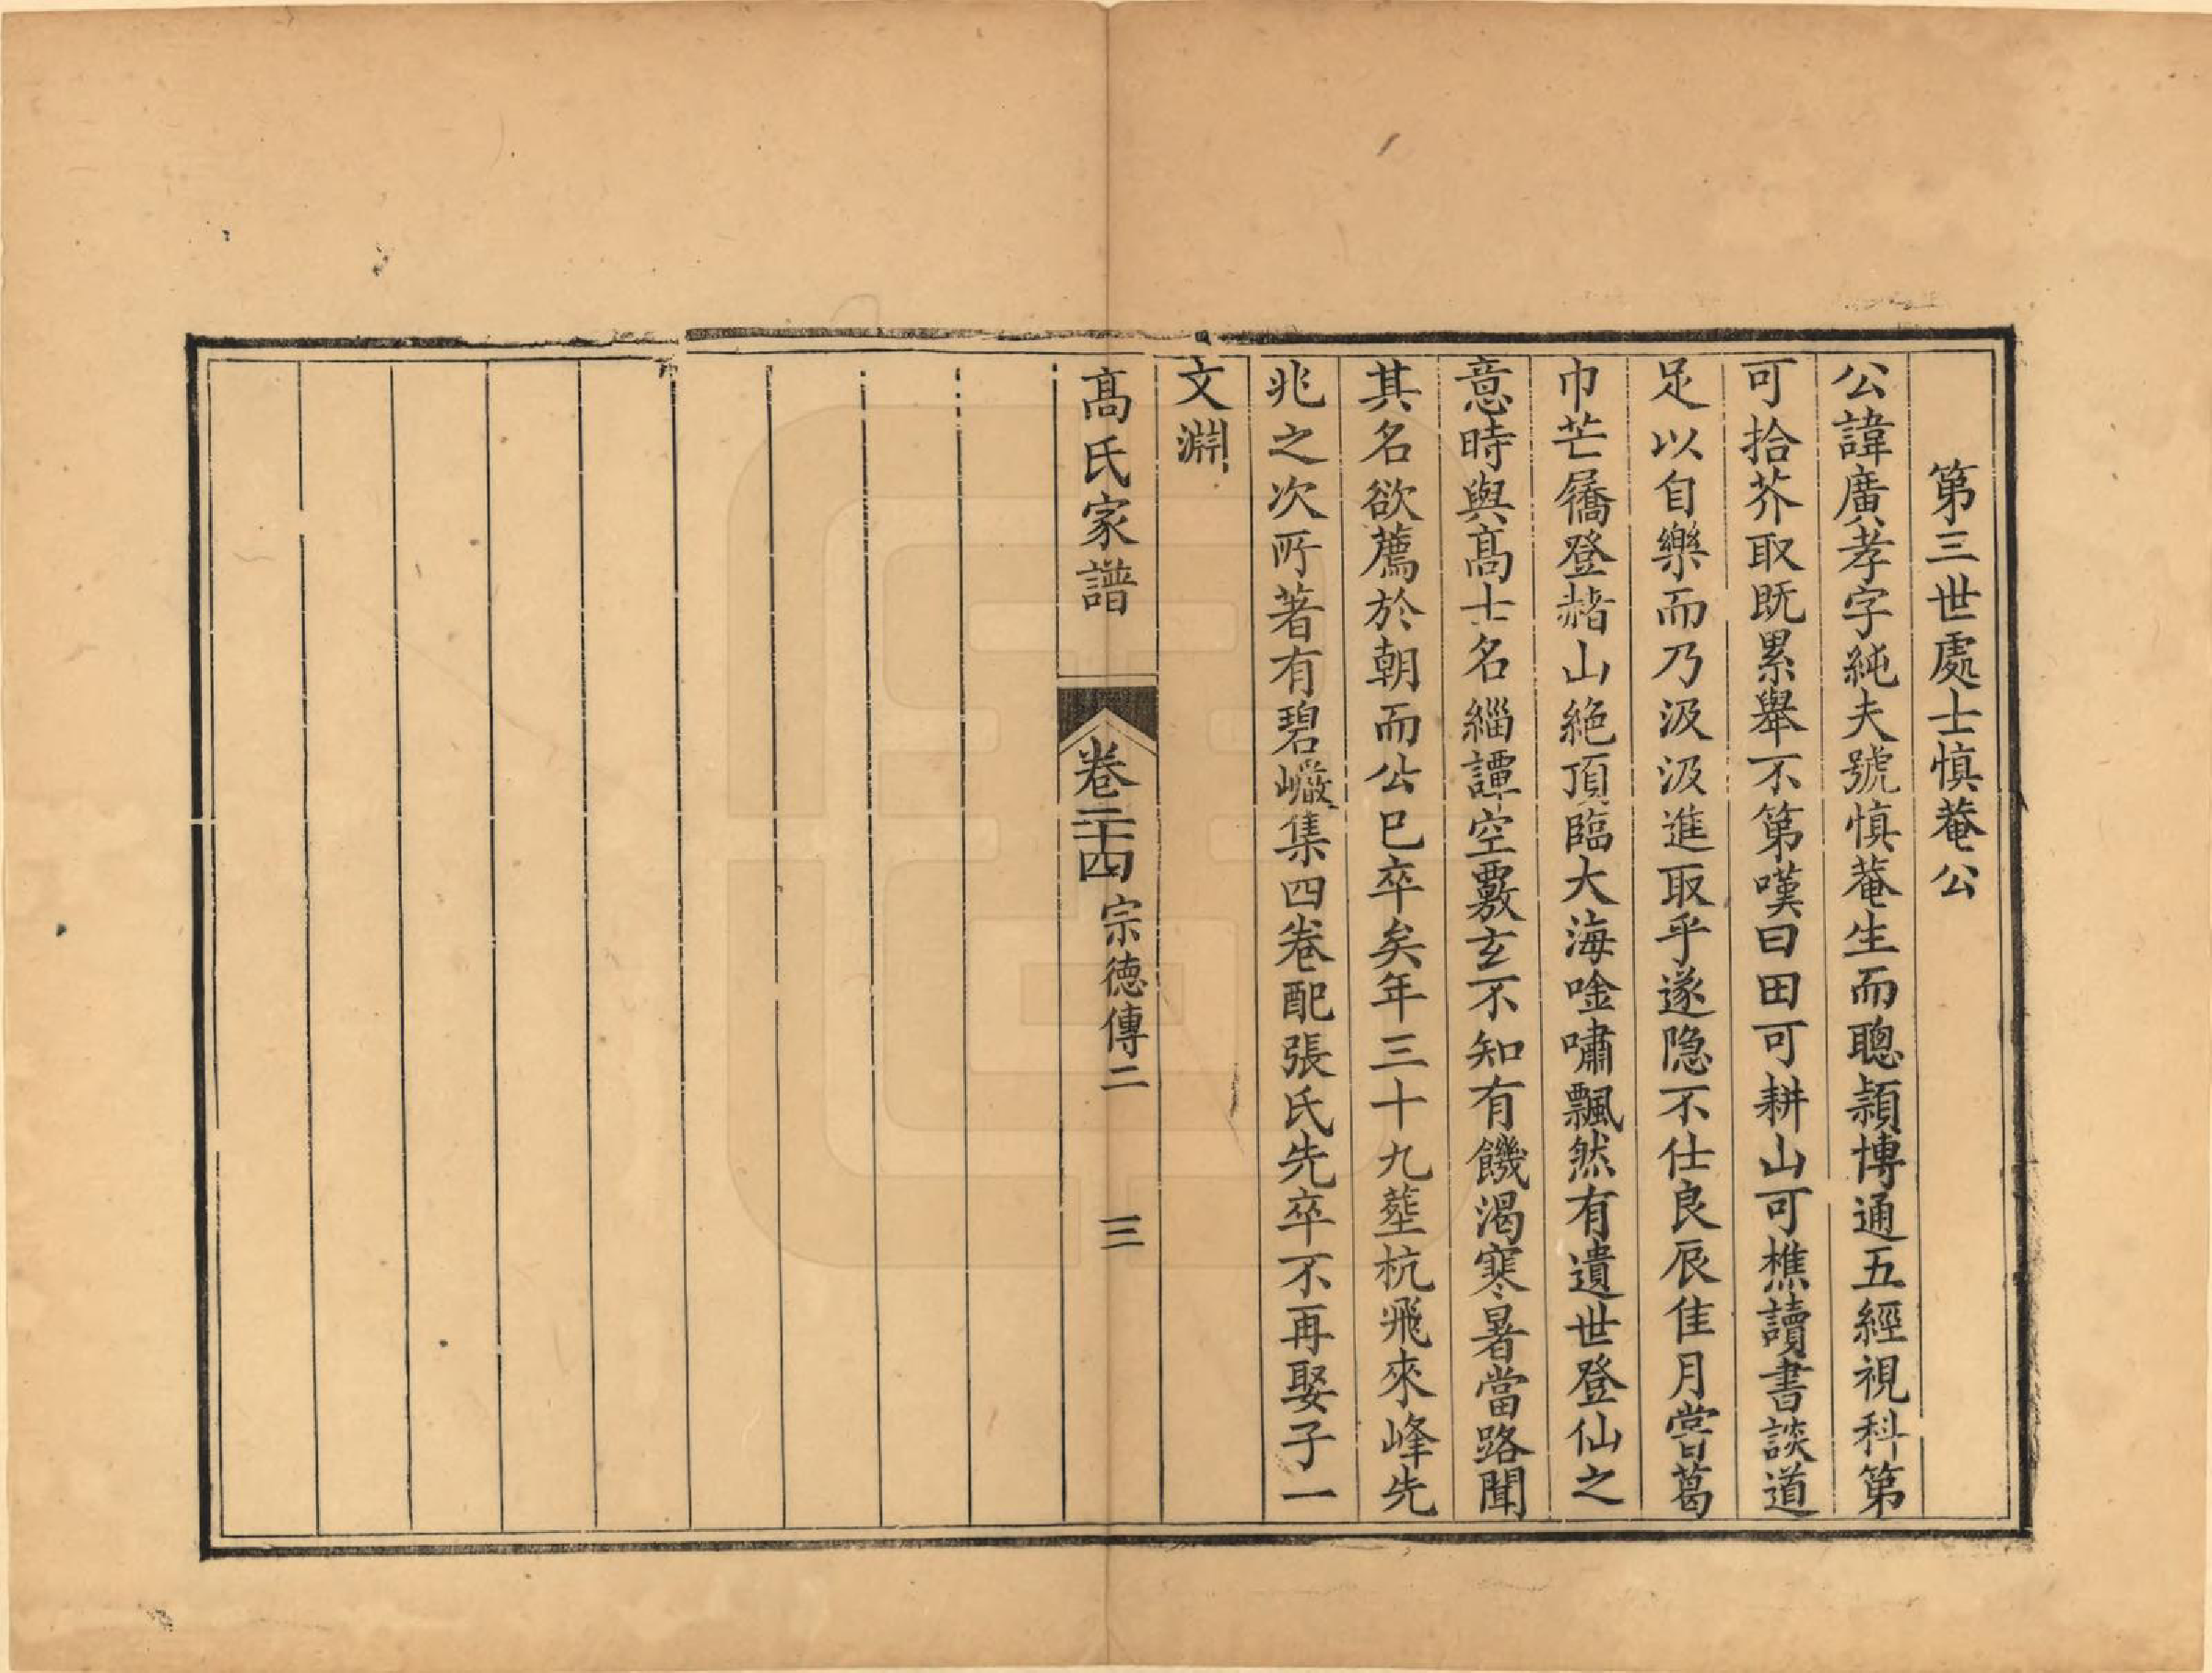 第三世處士慎菴公
公諱廣孝字純夫號慎菴生而聰頴博通五經視科第
可拾芥取既累舉不第嘆曰田可耕山可樵讀書談道
足以自樂而乃汲汲進取乎遂隐不仕良辰佳月嘗葛
巾芒屩登赭山絶頂臨大海唫嘯飄然有遺世登仙之
意時與髙士名緇譚空覈玄不知有饑渴寒暑當路聞
其名欲薦於朝而公已卒矣年三十九塟杭飛來峰先
兆之次所著有碧巗集四卷配張氏先卒不再娶子一
文淵
髙氏家譜
卷二十四
宗德傳二
三